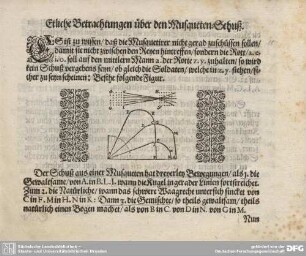 Etliche Betrachtungen über den Musqueten-Schuß.
ES ist zu wissen / daß die Musquetirer nicht gerad zuschiessen sollen /
damit sie nicht zwischen den Reyen hintreffen / sondern die Rott /
soll auf den mitlern Mann 2. der Rotte x. y. inhalten / so wird
kein Schuß vergebens seyn / ob gleich die Soldaten / welche in x. y. stehen /
cher zu seyn scheinen; Besihe folgende Figur.
Der Schuß aus einer Musqueten hat dreyerley Bewegungen / als 1. die
Gewaltsame / von A. in B. I. L. wann die Kugel in gerader Linien fortstreichet.
Zum 2. die Natürliche / wann das schwere Waagrecht untersich sincket von
C in F. M in H. N in K: Dann 3. die Gemischte / so theils gewaltsam / theils
natürlich einen Bogen machet / als von B in C von D in N. von G in M.
Nun